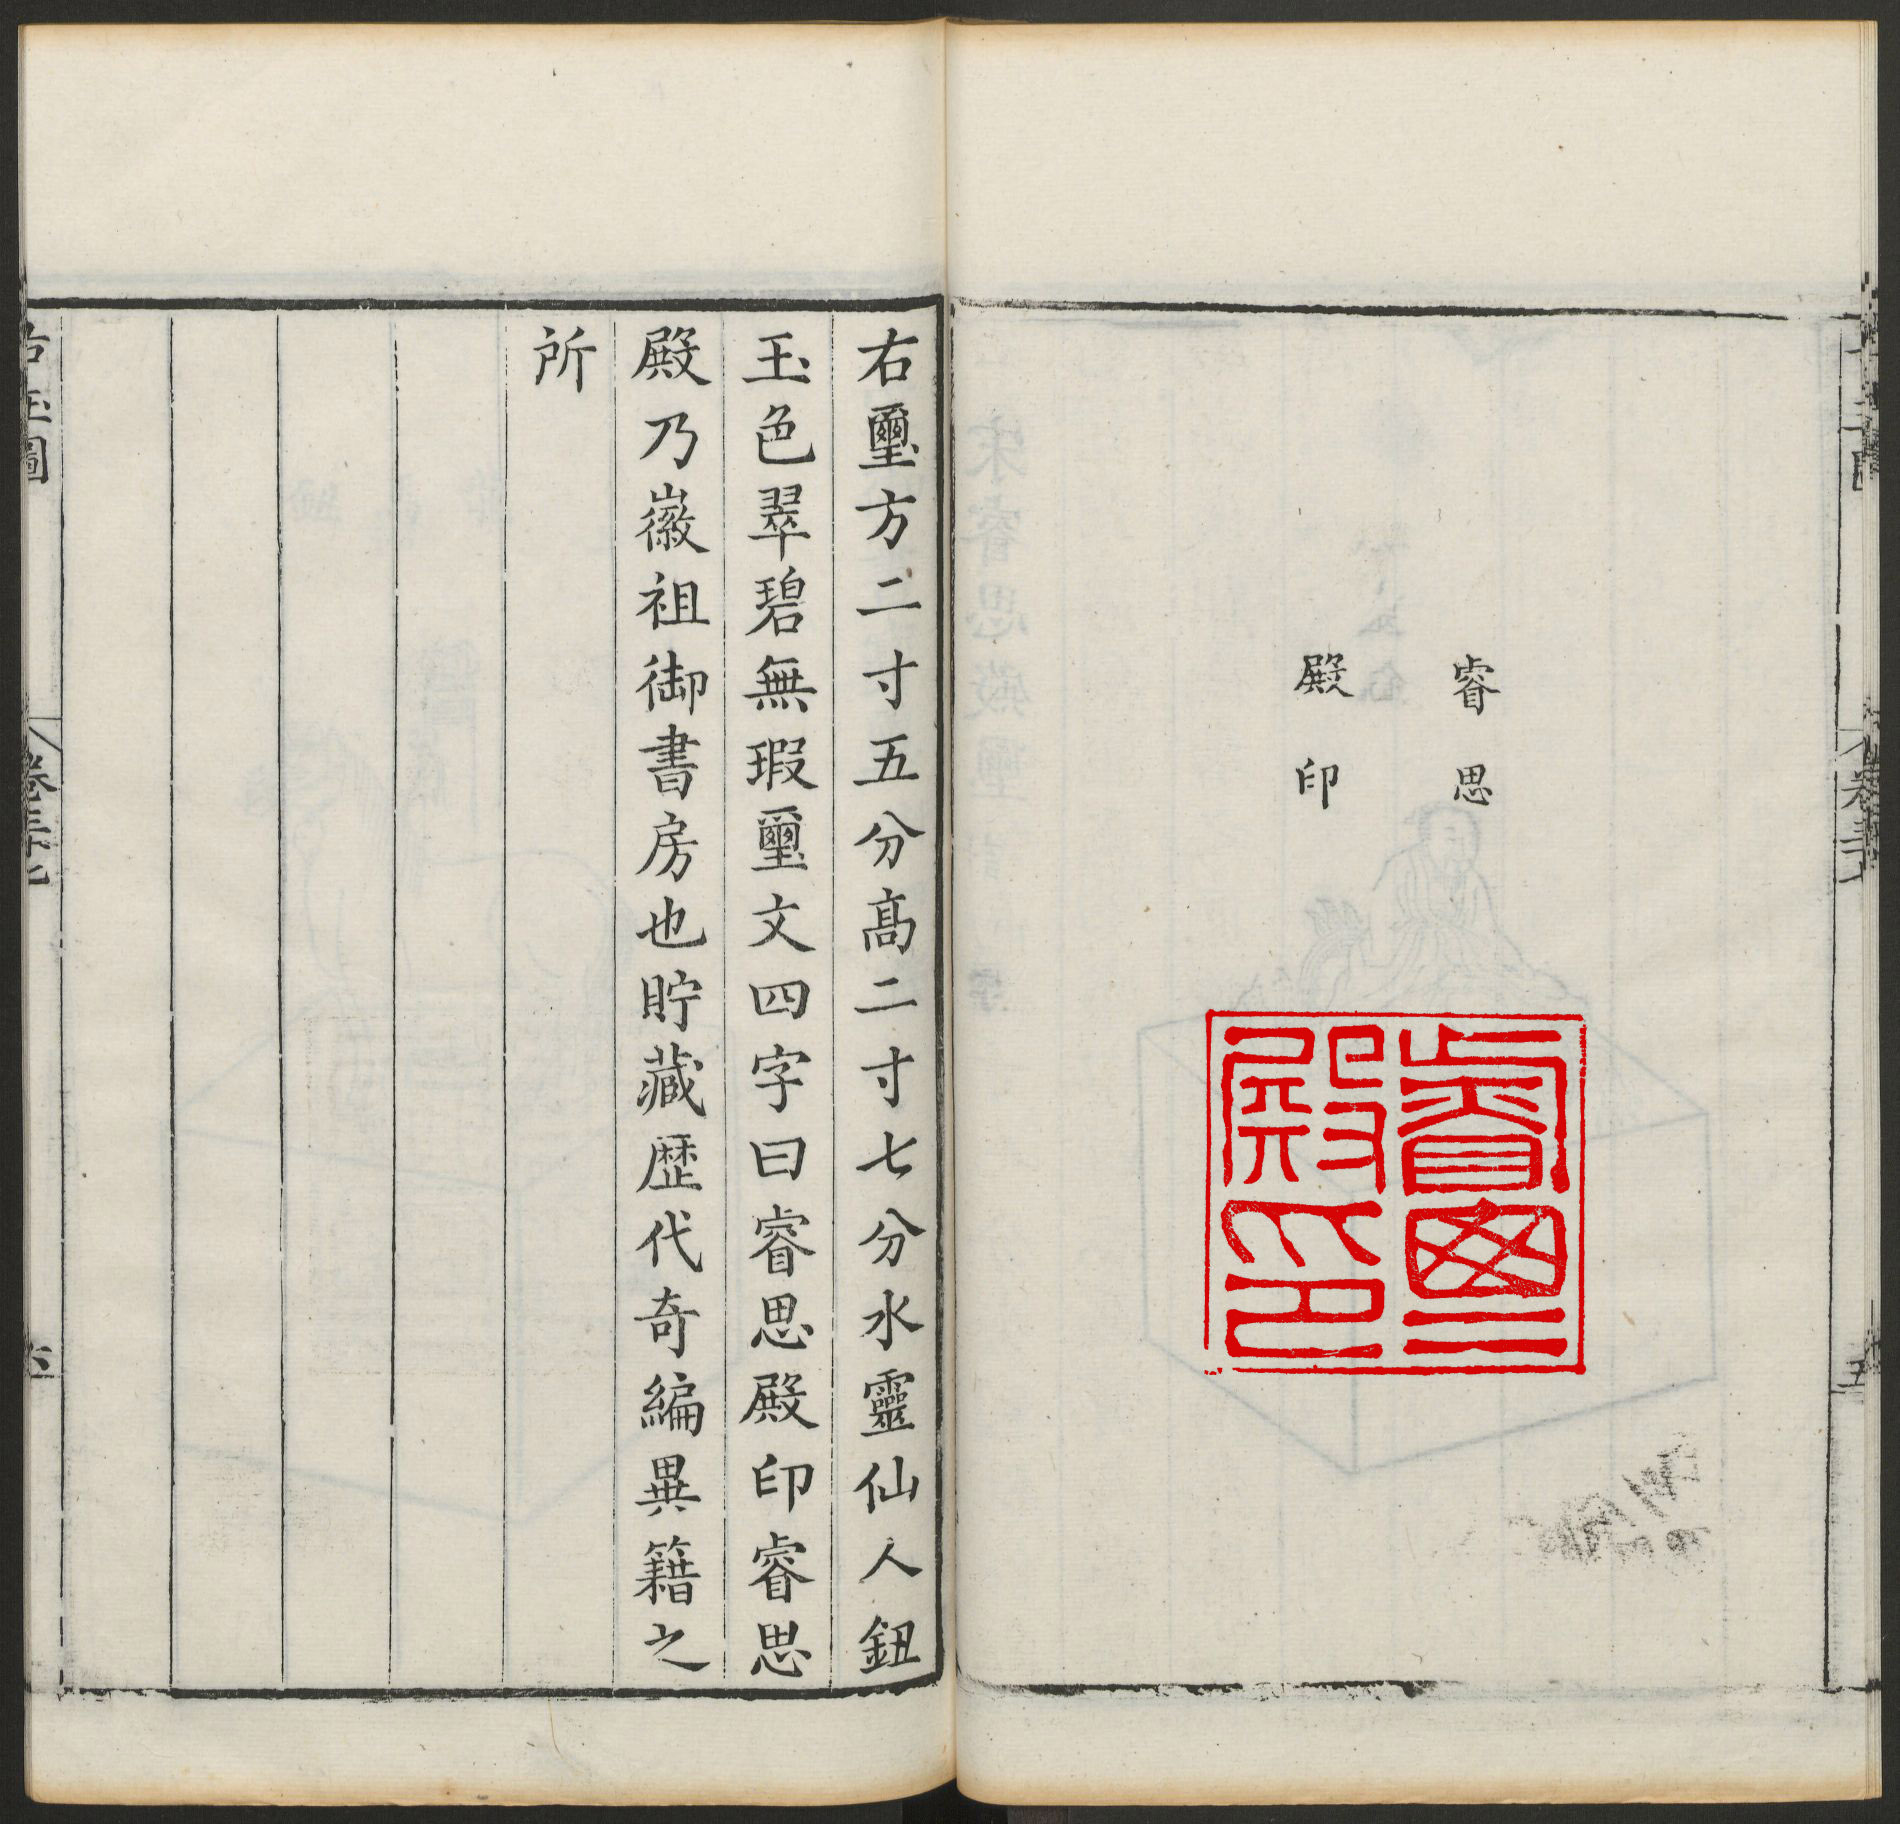 睿思
殿印
睿思
殿印
右璽方二寸五分高二寸七分水靈仙人鈕
玉色翠碧無瑕璽文四字曰睿思殿印睿思
殿乃徽祖御書房也貯藏歴代奇編異籍之
所
古玉圖